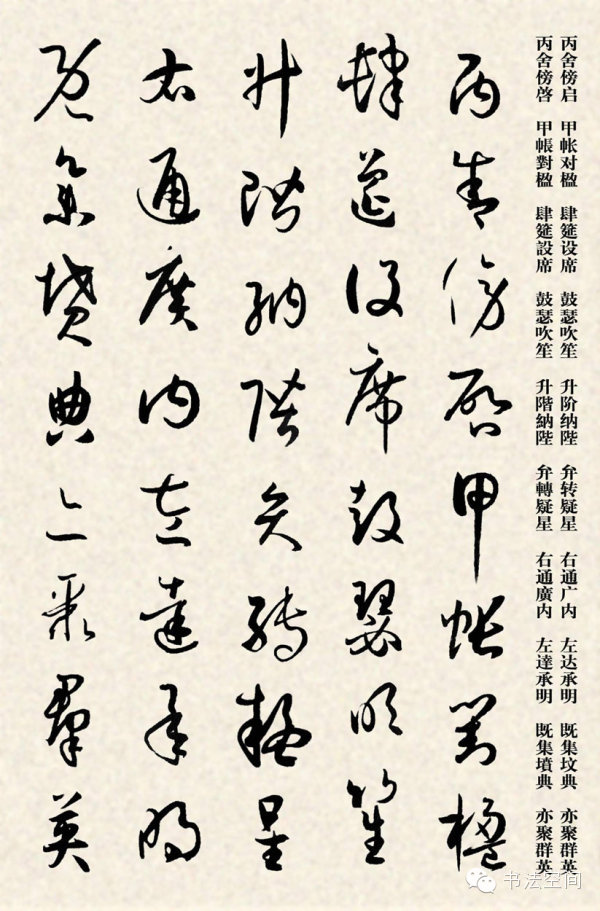 丙舍傍启 甲帐对楹 肆筵设席 鼓瑟吹笙 升阶纳陛 弁转疑星 右通广内 左达承明 既集坟典 亦聚群英
丙舍傍啓 甲帳對楹 肆筵設席 鼓瑟吹笙 升階納陛 弁轉疑星 右通廣内 左達承明 既集墳典 亦聚群英
丙舍傍啓甲帳對楹
肆筵設席鼓瑟吹笙
升階納陛弁轉疑星
右通廣内左達承明
既集墳典亦聚群英
书法空间